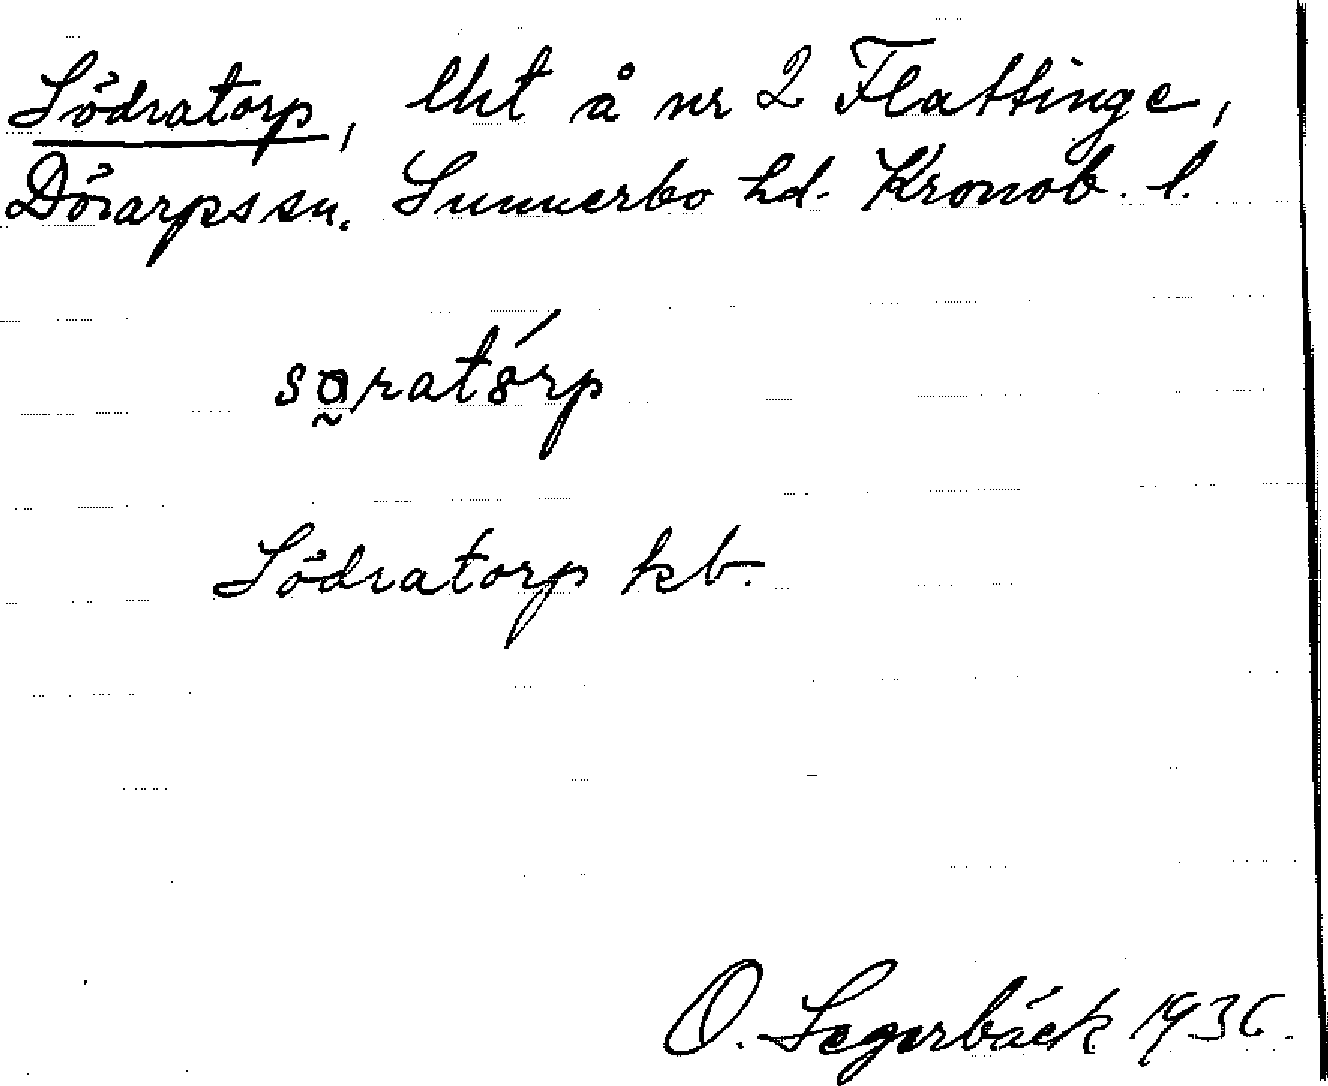 Södratorp, lht å nr 2 Flattinge,
Dörarps sn. Sunnerbo hd. Kronob. l.
so̰ratórp
Södratorp kb.
O. Segerbäck 1936.